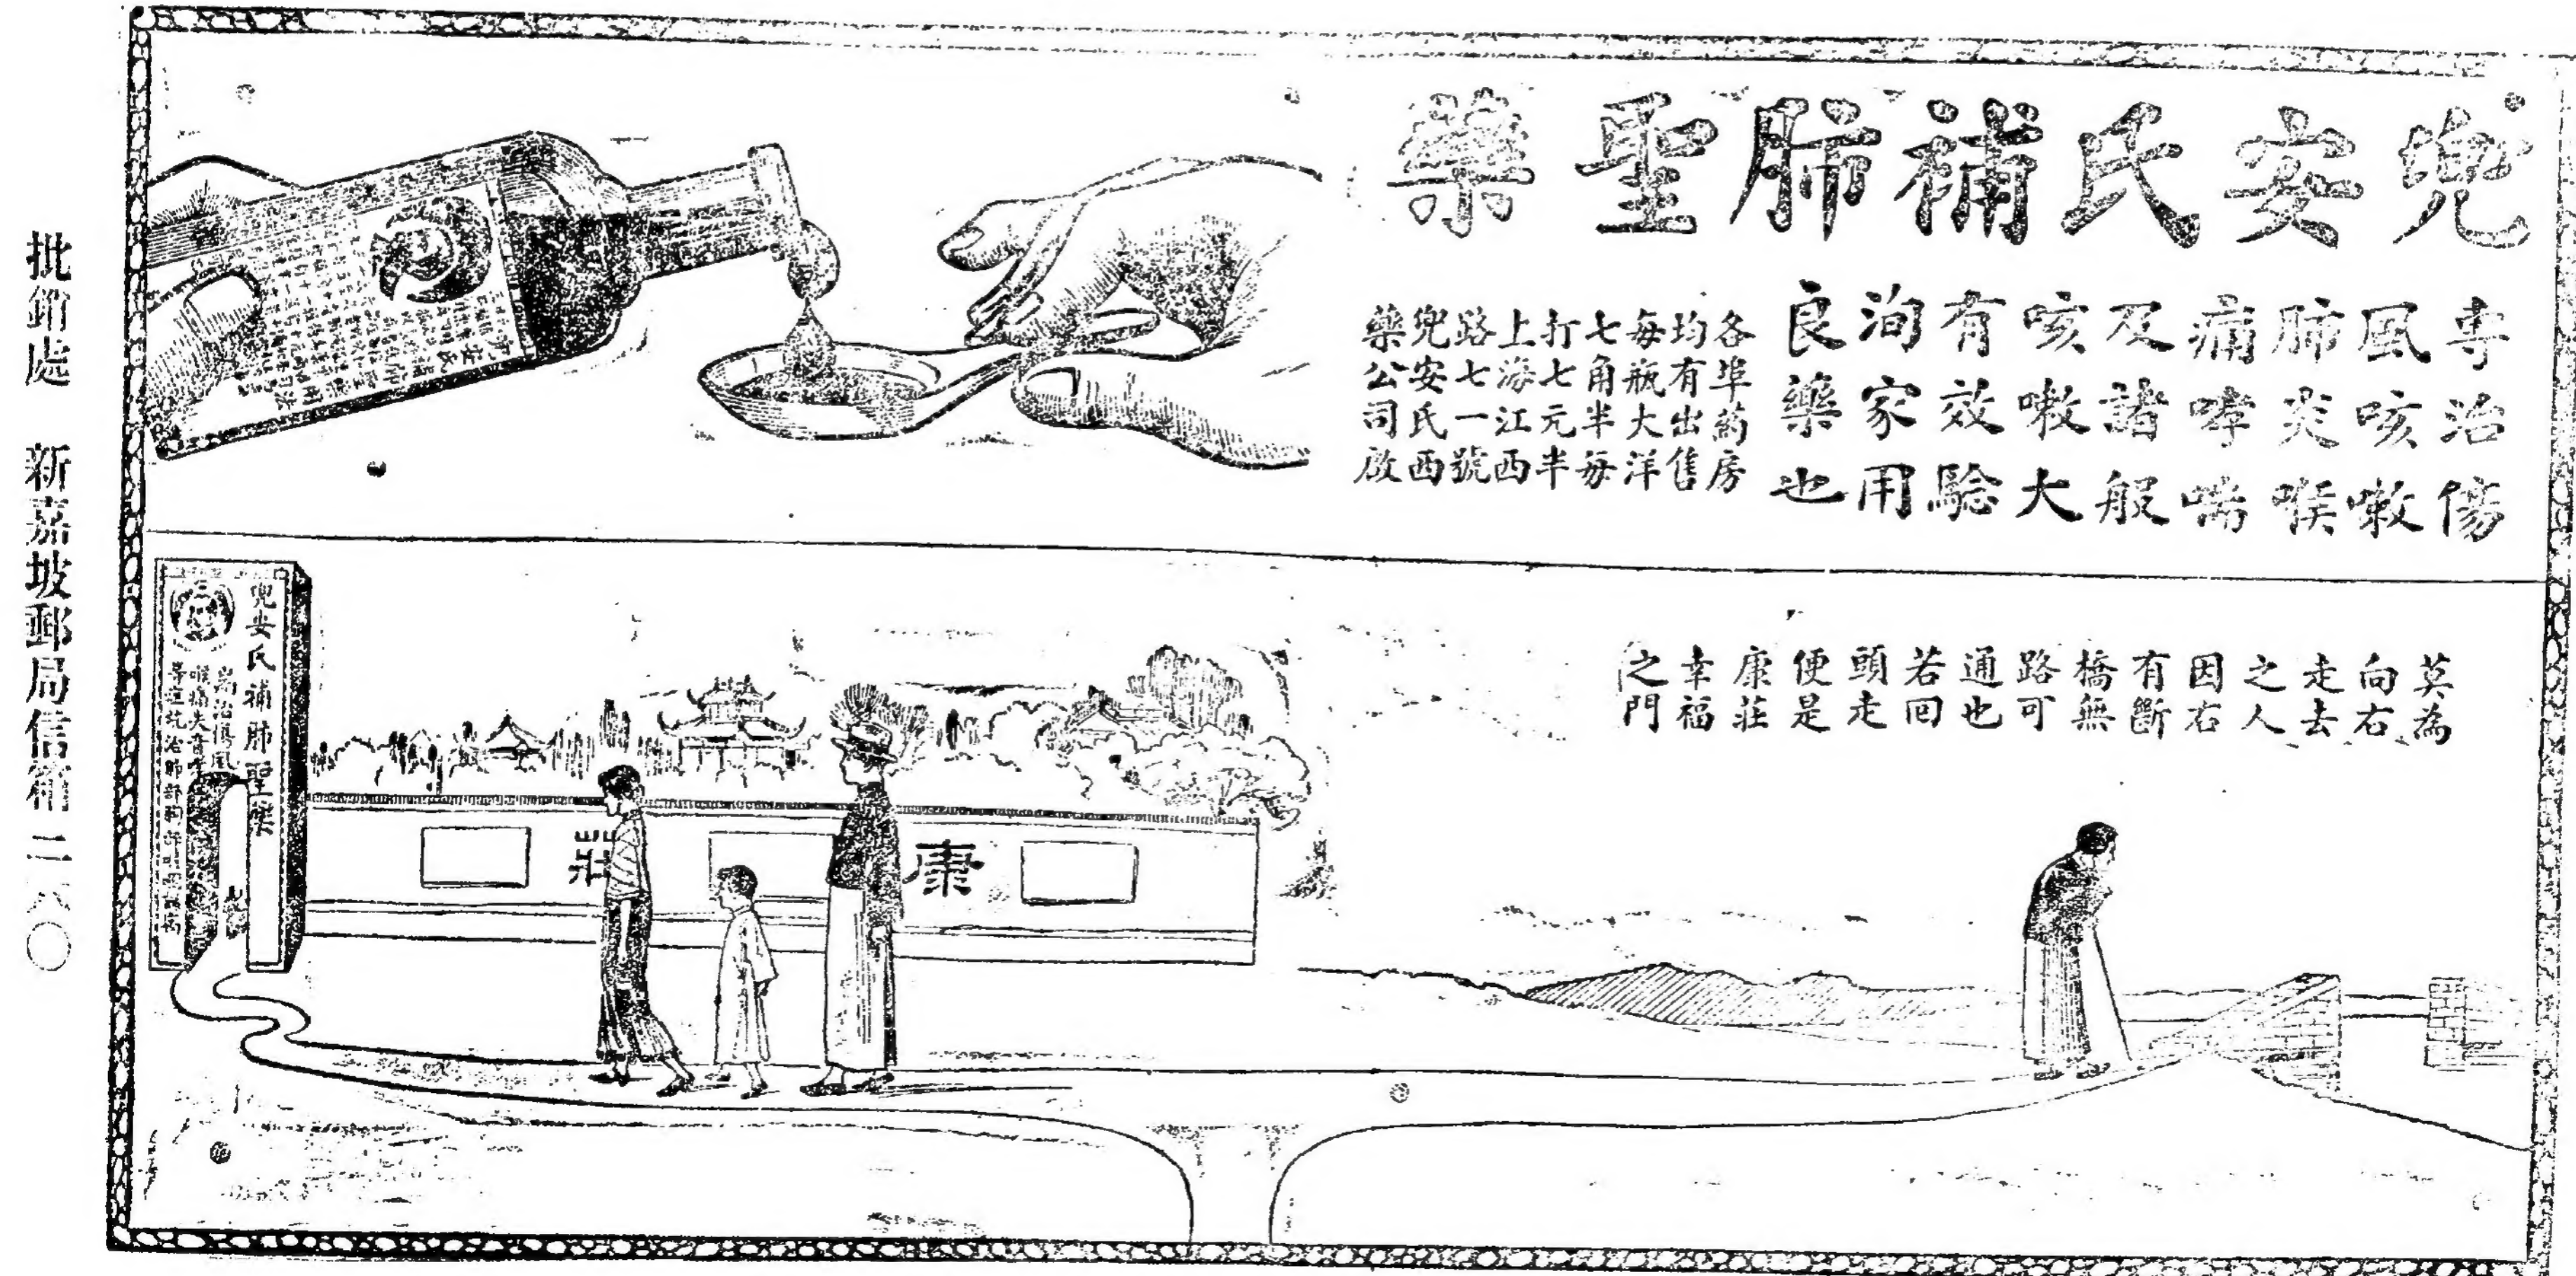 兜安氏補肺聖藥
專治傷
風咳嗽
肺炎喉
痛哮喘
及諸般
咳嗽大
有效驗
洵家用
良藥也
各埠葯房
均有出售
每瓶大洋
七角半每
打七元半
上海江西
路七一號
兜安氏西
藥公司啟
莫為
向右
走去
之人
因右
有斷
橋無
路可
通也
若回
頭走
便是
康莊
幸福
之門
康莊
兜安氏補肺聖藥
批銷處 新嘉坡郵局信箱二六〇